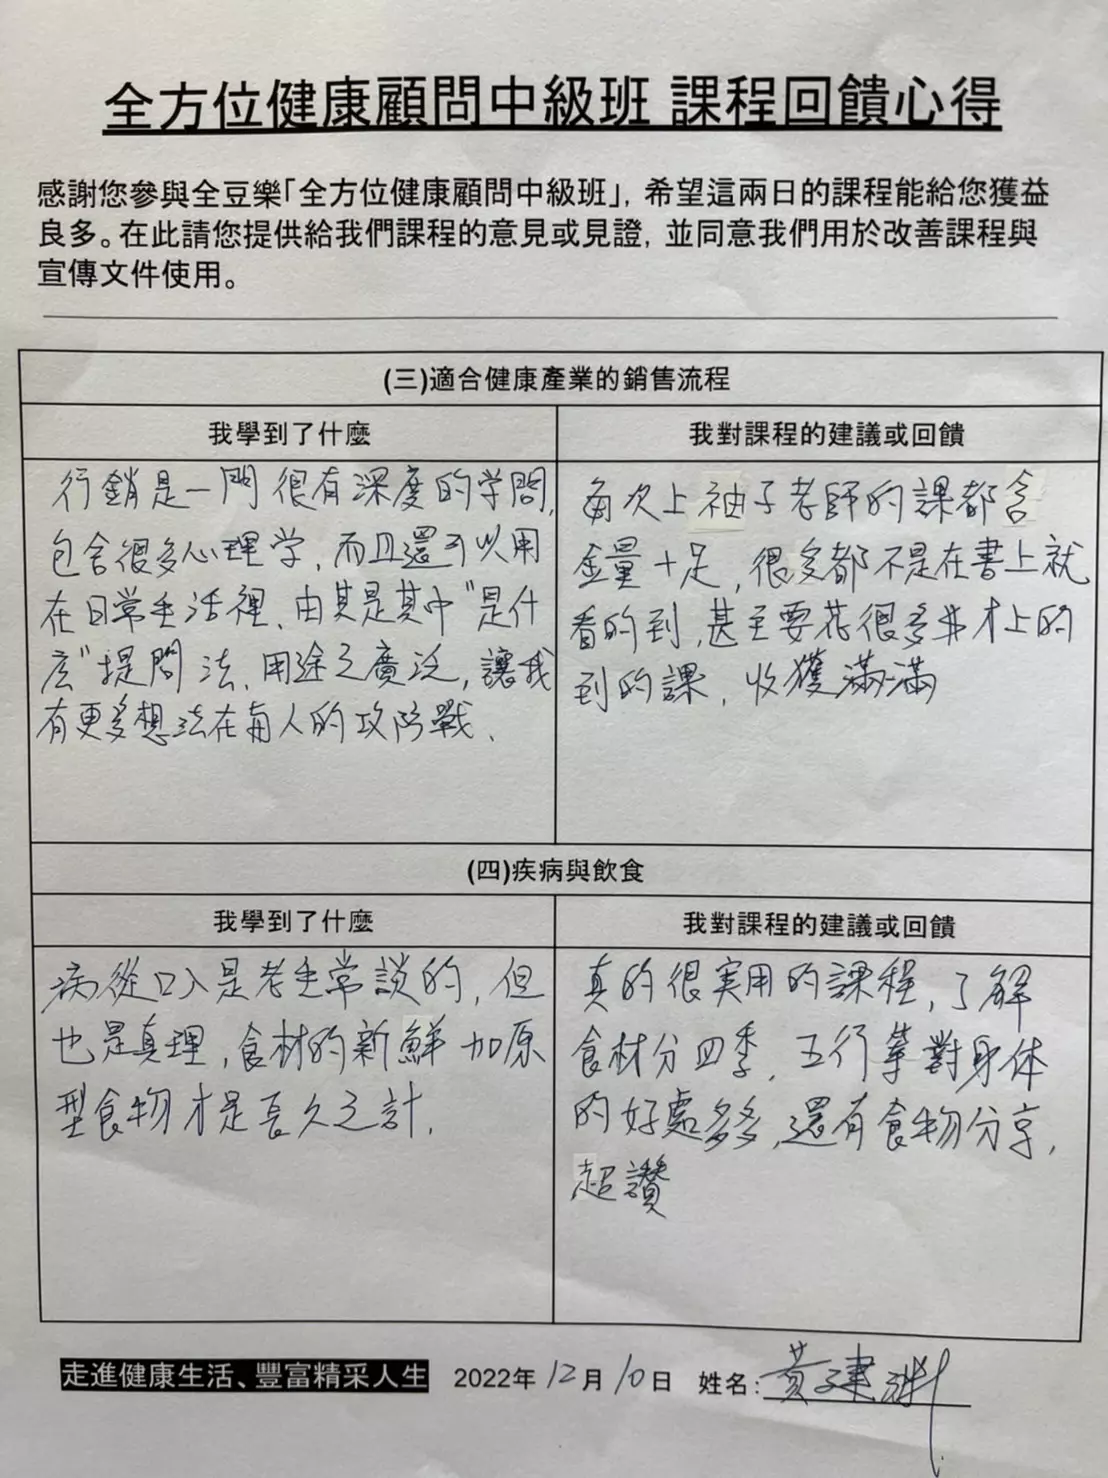 全方位健康顧問中級班 課程回饋心得
感謝您參與全豆樂「全方位健康顧問中級班」, 希望這兩日的課程能給您獲益
良多。在此請您提供給我們課程的意見或見證, 並同意我們用於改善課程與
宣傳文件使用。
(三)適合健康產業的銷售流程
我學到了什麼
行銷是一門很有深度的学問,
包含很多心理学,而且還可以用
在日常生活裡、由其是其中"是什
么"提問法、用途之廣泛,讓我
有更多想法在每人的攻防戰、
我對課程的建議或回饋
每次上袖子老師的課都含
金量十足,很多都不是在書上就
看的到,甚至要花很多𠂆才上的
到的課,收獲滿滿
(四)疾病與飲食
我學到了什麼
病從口入是老生常談的,但
也是真理,食材的新鮮加原
型食物才是長久之計.
我對課程的建議或回饋
真的很実用的課程,了解
食材分四季,五行等對身体
的好處多多,還有食物分享,
超讚
走進健康生活、豐富精采人生 2022年 12月 10日 姓名: 黃建